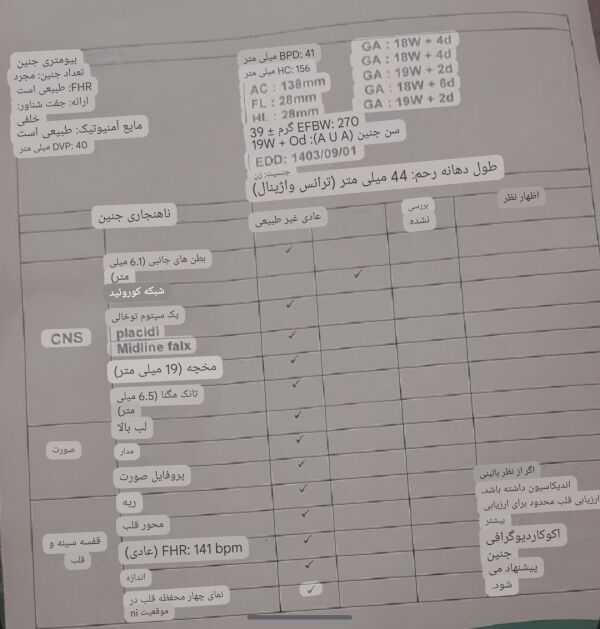 بیومتری جنین
تعداد جنین: مجرد
FHR: طبیعی است
ارائه: جفت شناور:
خلفی
مایع آمنیوتیک: طبیعی است
DVP: 40 میلی متر
BPD: 41 میلی متر
HC: 156 میلی متر
AC : 138mm
FL : 28mm
HL : 28mm
GA : 18W + 4d
GA : 18W + 4d
GA : 19W + 2d
GA : 18W + 6d
GA : 19W + 2d
EFBW: 270 گرم ± 39
سن جنین (A U A): 19W + Od
EDD: 1403/09/01
جنسیت: زن
طول دهانه رحم: 44 میلی متر (ترانس واژینال)
ناهنجاری جنین
عادی غیر طبیعی
بررسی
نشده
اظهار نظر
CNS
بطن های جانبی (6.1 میلی
متر)
✓
شبکه کوروئید
✓
یک سپتوم توخالی
✓
placidi
Midline falx
✓
مخچه (19 میلی متر)
✓
تانک مگنا (6.5 میلی
متر)
✓
صورت
لب بالا
✓
مدار
✓
پروفایل صورت
✓
قفسه سینه و
قلب
ریه
✓
محور قلب
✓
FHR: 141 bpm (عادی)
✓
اندازه
✓
نمای چهار محفظه قلب در
موقعیت ni
✓
اگر از نظر بالینی
اندیکاسیون داشته باشد،
ارزیابی قلب محدود برای ارزیابی
بیشتر
اکوکاردیوگرافی
جنین
پیشنهاد می
شود.